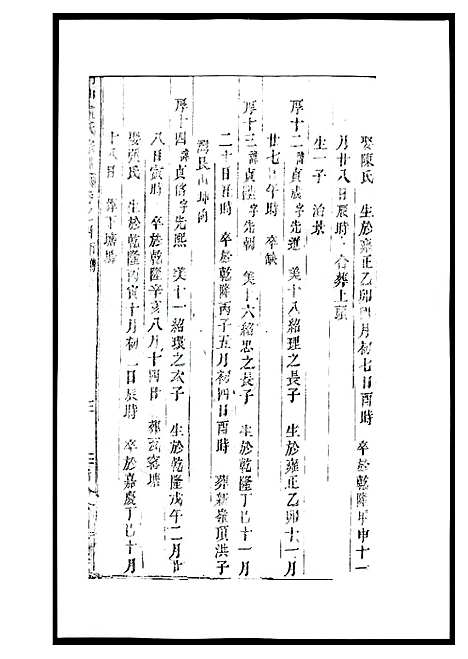 娶陳氏 生於雍正乙卯四月初七日酉時 卒於乾隆年申十一
月廿八日辰時 合葬上京
生一子 治景
厚十二 諱貞 字先進 美十八紹理之長子 生於雍正乙卯十一月
廿七日午時 卒缺
厚十三 諱貞 字先朝 美十六紹忠之長子 生於乾隆丁巳十一月
二十日丑時 卒於乾隆丙子五月初四日酉時 葬新嶺頂洪子
灣艮山坤向
厚十四 諱貞啓字先熙 美十一紹環之次子 生於乾隆戊午二月廿
八日寅時 卒於乾隆辛亥八月十四日 葬瓦窰塘
娶張氏 生於乾隆丙寅十月初一日辰時 卒於嘉慶丁巳十月
十八日 葬下塘